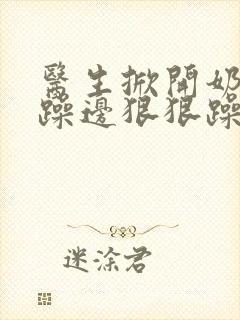 醫生掀開奶
躁邊狠狠躁
迷涂君